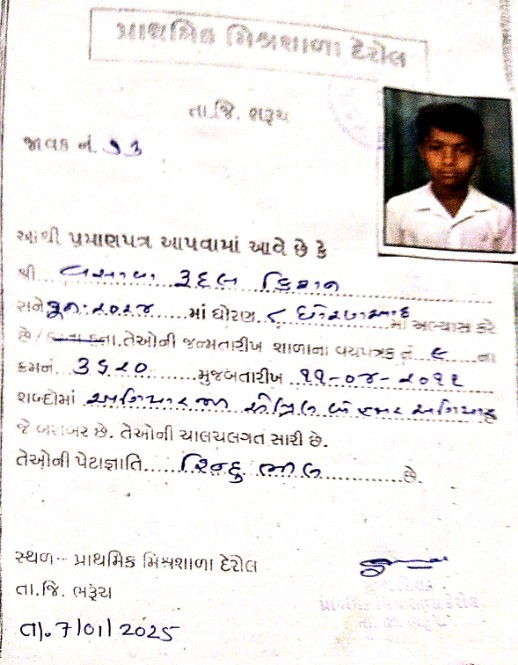 પ્રાથમિક મિશ્રશાળા દેરોલ
તા.જિ. ભરૂચ
જાવક નં. ૭૩
આથી પ્રમાણપત્ર આપવામાં આવે છે કે
શ્રી વસાવા રૂદલ કિશન
સને જુન:૨૦૨૪ માં ધોરણ ૮ માં અભ્યાસ કરે
છે/ .તેઓની જન્મતારીખ શાળાના વયપત્રક નં ૯ ના
ક્રમનં. ૩૬૨૦ મુજબતારીખ ૧૧-૦૪-૨૦૧૧
શબ્દોમાં અગિયારમી એપ્રિલ બે હજાર અગિયાર
જે બરાબર છે. તેઓની ચાલચલગત સારી છે.
તેઓની પેટાજ્ઞાતિ હિન્દુ ભીલ છે.
સ્થળ- પ્રાથમિક મિશ્રશાળા દેરોલ
તા.જિ. ભરૂચ
તા.7/01/2025
પ્રાથમિક મિશ્રશાળા દેરોલ
તા.જિ. ભરૂચ